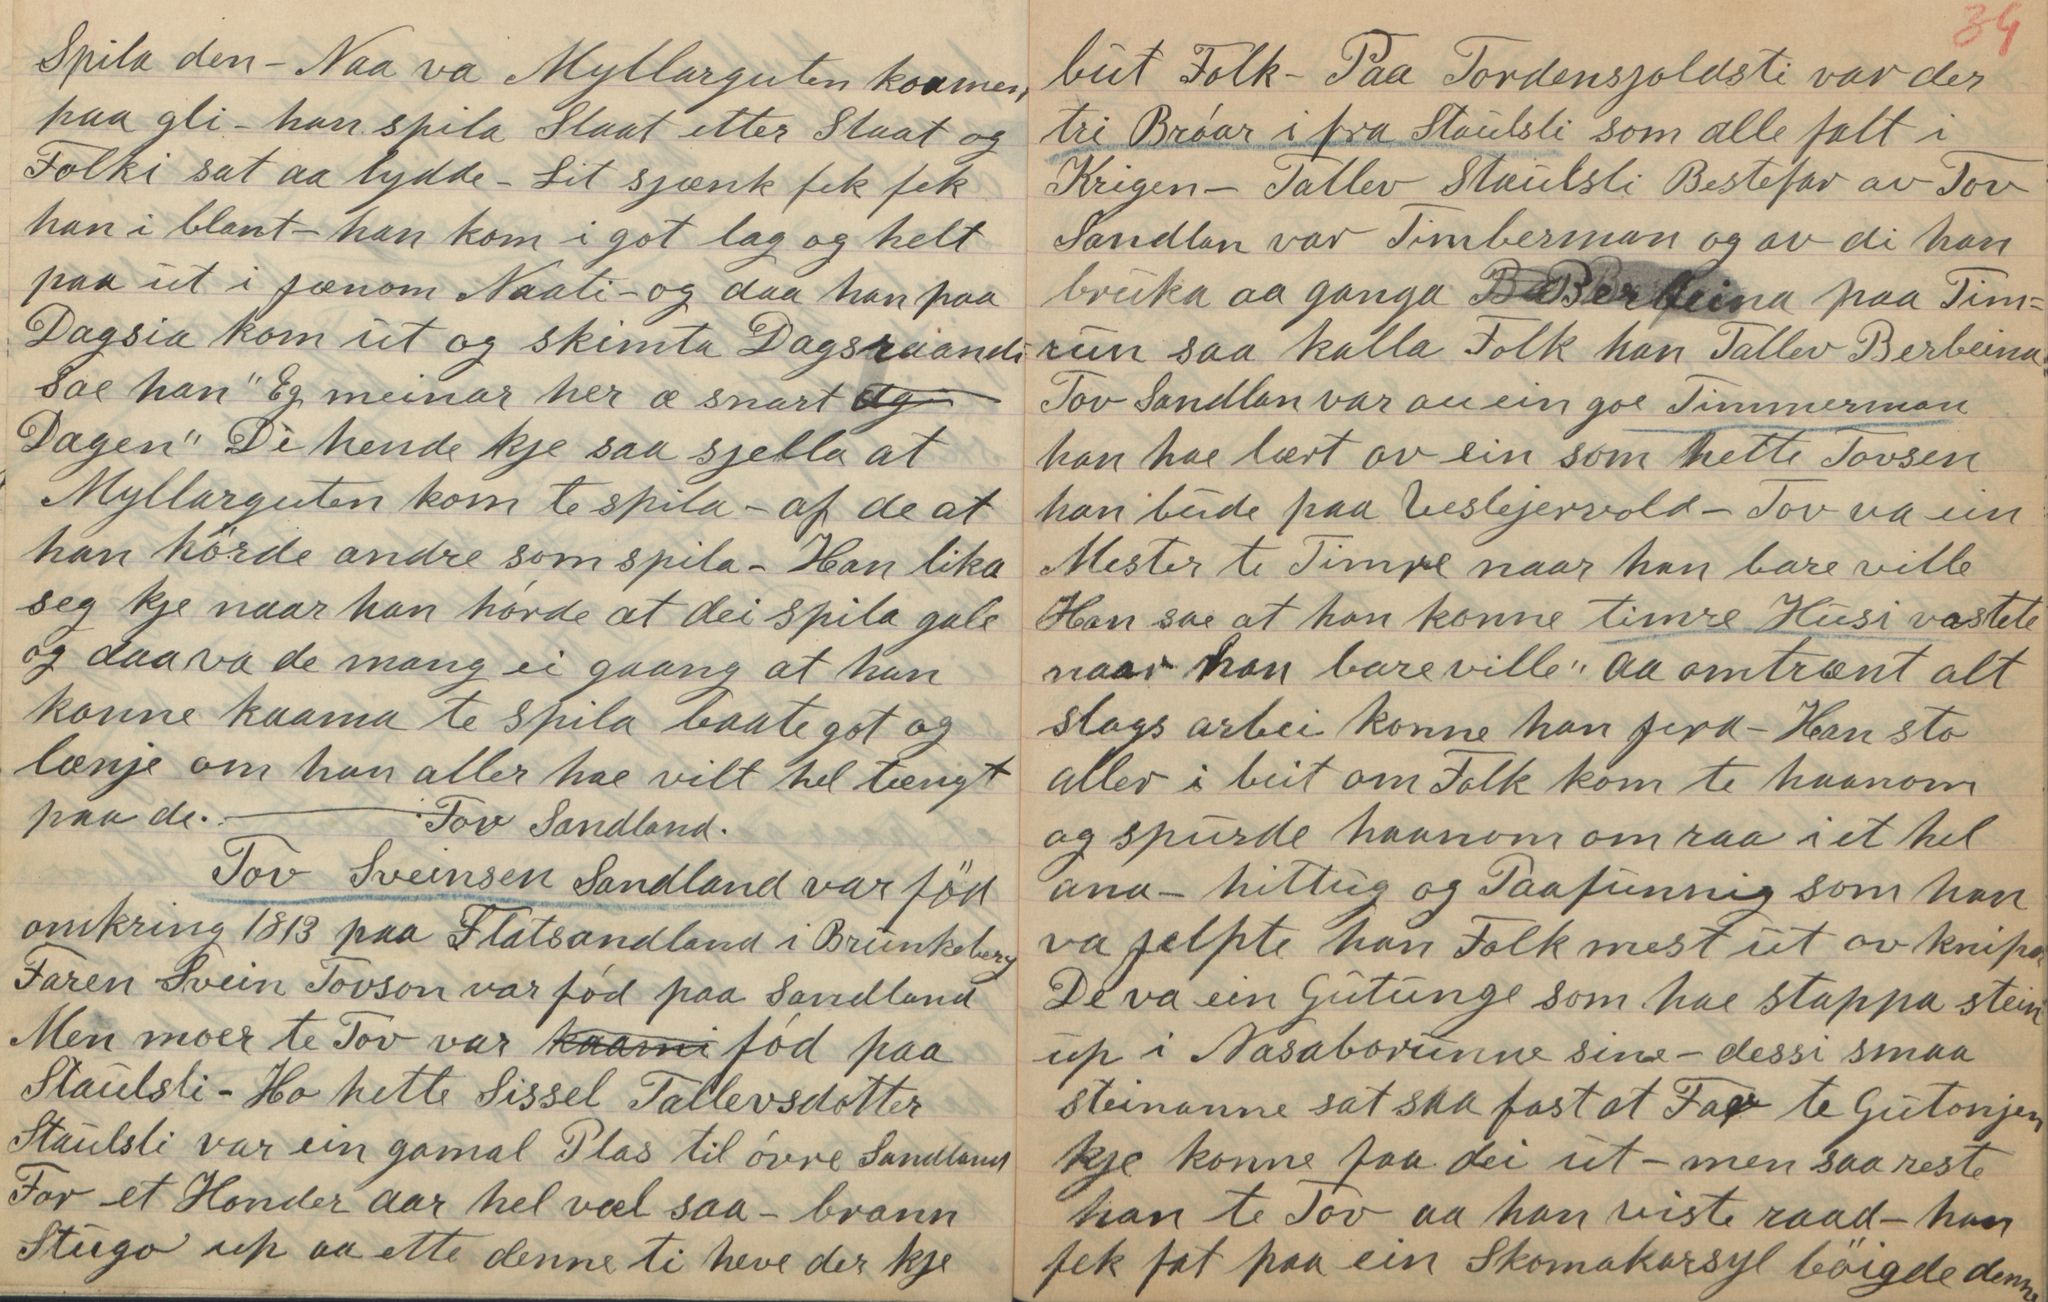 Spila den – Naa va Myllarguten kaamen
paa gli – han spila Slaat etter Slaat og
Folki sat aa lydde – Lit sjænk fek fek
han i blant – han kom i got lag og helt
paa ut i jænom Naati – og daa han paa
Dagsia kom ut og skimta Dagsraandi
sae han "Eg meinar her æ snart
Dagen" Di hende kje saa sjella at
Myllarguten kom te spila – af de at
han hørde andre som spila – Han lika
seg kje naar han hørde at dei spila gale
og daa va de mang ei gaang at han
konne kaama te spila baate got og
lænje om han aller hae vilt hel tængt
paa de. – Tov Sandland.
Tov Sveinsen Sandland var föd
omkring 1813 paa Flatsandland i Brunkeberg
Faren Svein Tovson var fód paa Sandland
Men moer te Tov var kaami fód paa
Staulsli – Ho hette Sissel Tallevsdotter
Staulsli var ein gamal Plas til óvre Sandland
For et Honder aar hel væl saa – brann
Stugo up aa ette denne ti heve der kje
34
but Folk – Paa Tordensjoldsti var der
tri Bróar i fra Staulsli som alle falt i
Krigen – Tallev Staulsli Bestefar av Tov
Sandlan var Timberman og av di han
bruka aa ganga Berbeina paa Tim=
run saa kalla Folk han Tallev Berbeina
Tov Sandlan var au ein goe Timmerman
han hae lært av ein som hette Tovsen
han bude paa Veslejervold – Tov va ein
Mester te Timre naar han bare ville
Han sae at han konne timre Husi vastete
naar han bare ville" aa omtrænt alt
slags arbei konne han jera – Han sto
aller i beit om Folk kom te haanom
og spurde haanom om raa i et hel
ana – hittug og Paafunnig som han
va jelpte han Folk mest ut av knipa
De va ein Gutunge som hae stappa stein
up i Nasaborunne sine – dessi smaa
steinanne sat saa fast at Far te Gutonjen
kje konne faa dei ut – men saa reste
han te Tov aa han viste raad – han
fek fat paa ein Skomakarsyl böigde denne